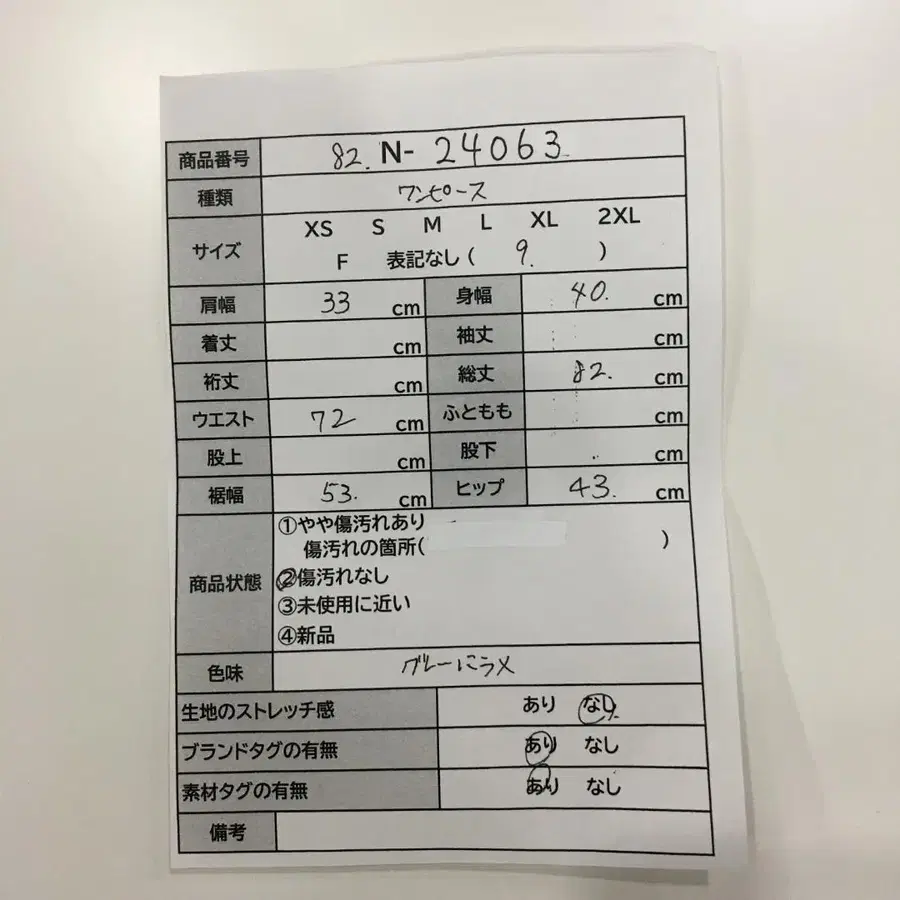 商品番号 82. N- 24063.
種類 ワンピース
サイズ XS S M L XL 2XL
F 表記なし ( 9. )
肩幅 33 cm 身幅 40. cm
着丈 cm 袖丈 cm
裄丈 cm 総丈 82. cm
ウエスト 72 cm ふともも cm
股上 cm 股下 cm
裾幅 53. cm ヒップ 43. cm
商品状態 ①やや傷汚れあり
傷汚れの箇所( )
②傷汚れなし
③未使用に近い
④新品
色味 グレーにラメ
生地のストレッチ感 あり なし
ブランドタグの有無 あり なし
素材タグの有無 あり なし
備考